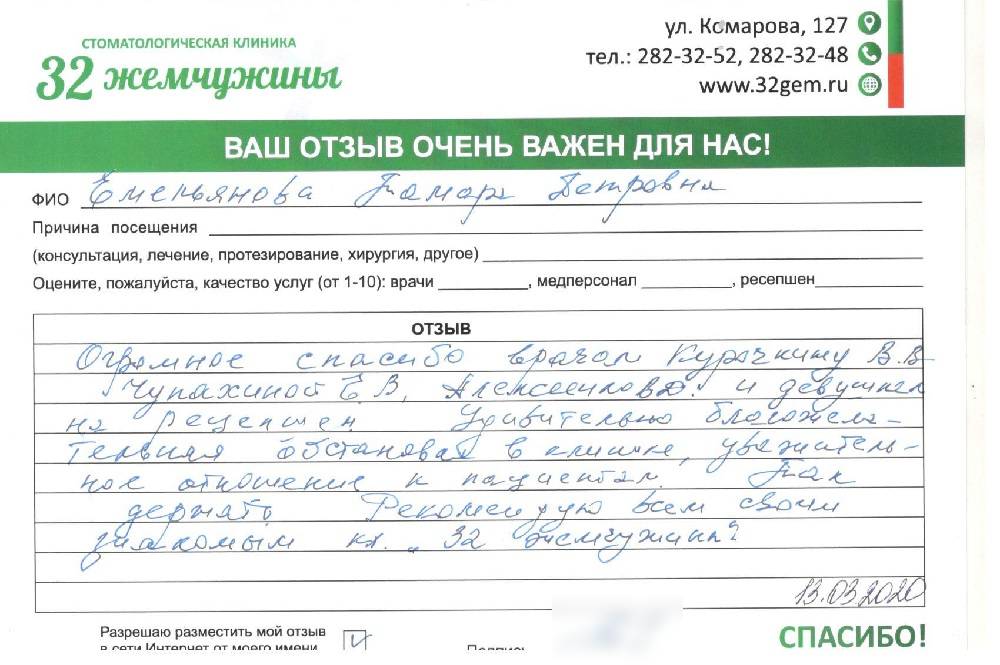 СТОМАТОЛОГИЧЕСКАЯ КЛИНИКА
32 жемчужины
ул. Комарова, 127
тел.: 282-32-52, 282-32-48
www.32gem.ru
ВАШ ОТЗЫВ ОЧЕНЬ ВАЖЕН ДЛЯ НАС!
ФИО Емельянова Тамара Петровна
Причина посещения
(консультация, лечение, протезирование, хирургия, другое)
Оцените, пожалуйста, качество услуг (от 1-10): врачи , медперсонал , ресепшен
ОТЗЫВ
Огромное спасибо врачам Курочкину В.В
Чупахиной Е.В, и девушкам
на рецепшен Удивительно благожела-
тельная обстановка в клинике, уважитель-
ное отношение к пациентам. Так
держать. Рекомендую всем своим
знакомым кл. „32 жемчужины"
13.03.2020
Разрешаю разместить мой отзыв
в сети Интернет от моего имени
Подпись
СПАСИБО!